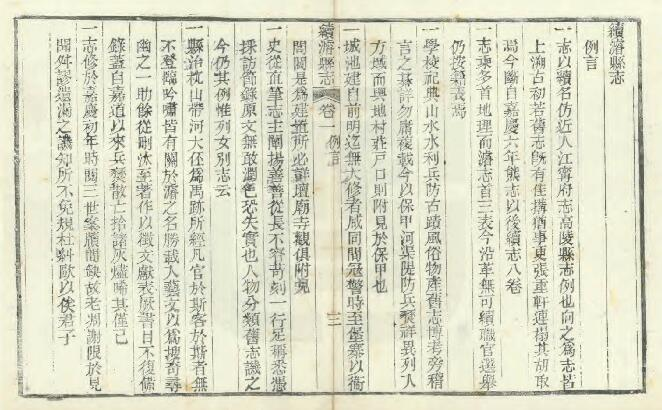 續濬縣志
例言
一志以續名仿近人江寧府志高陵縣志例也向之為志皆
上溯古初若舊志旣有佳搆猶事更張重軒連榻其胡取
焉今斷自嘉慶六年熊志以後續志八卷
一志乘多首地理而濬志首三表今沿革無可續職官選舉
仍按續表焉
一學校祀典山水水利兵防古蹟風俗物產舊志博考旁稽
言之綦詳勿庸複載今以保甲河渠隄防兵燹祥異列入
方域而輿地村莊戶口則附見於保甲也
一城池建自前明迄無大修者咸同間冦警時至堡寨以衛
續濬縣志
卷一 例言
三
閭閻是為建置所必詳壇廟寺觀俱附見
一史從直筆志主闡揚善善從長不齊苛刻一行足稱悉憑
採訪節錄原文無敢潤色恐失實也人物分類舊志譏之
今仍其例惟列女別志云
一縣治枕山帶河大伾為禹跡所經凡官於斯客於斯者無
不登臨吟嘯皆有關於濬之名勝載入藝文以為搜奇尋
幽之一助餘從刪汰至著作以徵文獻表厥書目不復備
錄蓋自嘉道以來兵燹散亡拾諸灰燼晞其僅已
一志修於嘉慶初年時閱三世案牘闕缺故老凋謝限於見
聞舛謬遺漏之譏知所不免規杜糾歐以俟君子